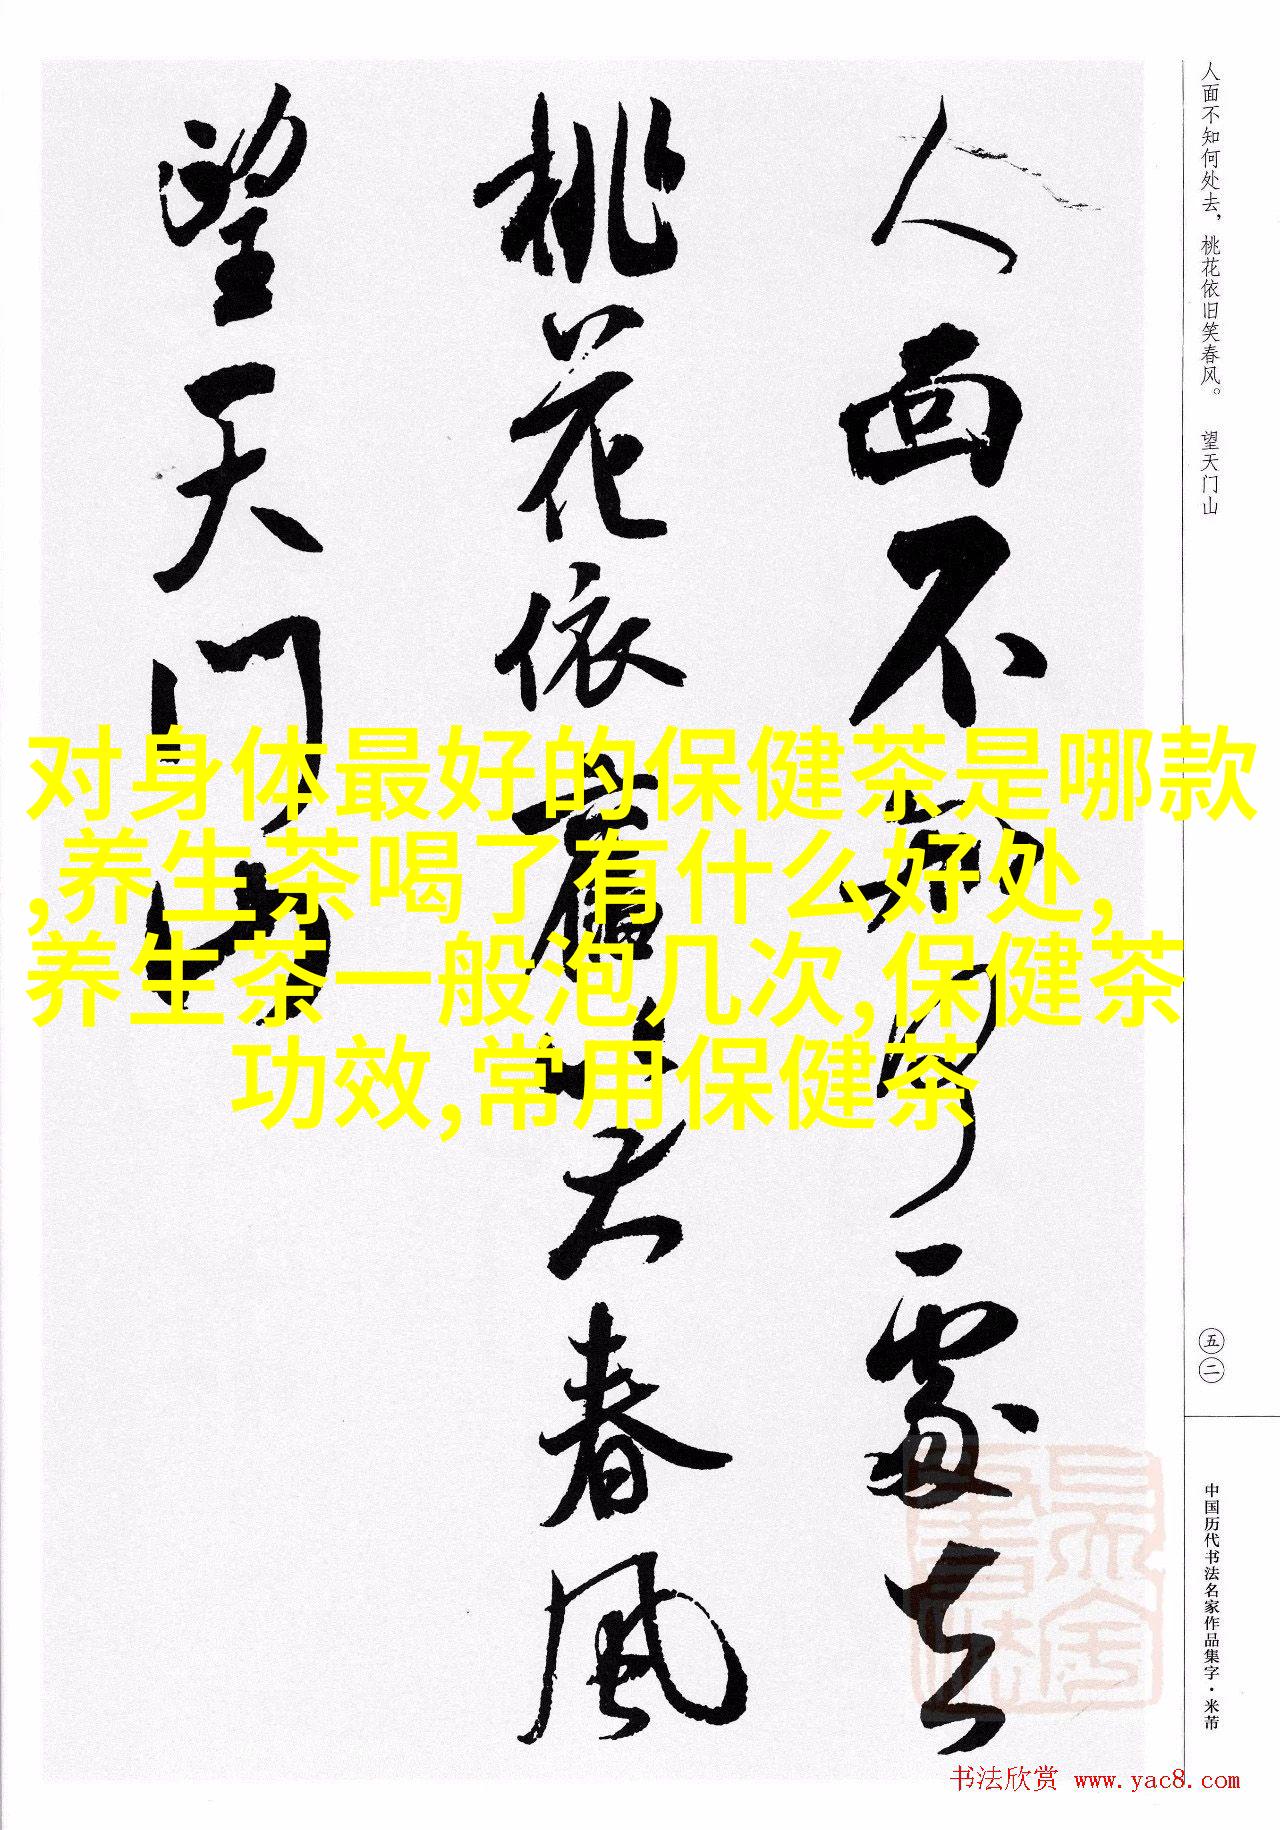 人面不知何處去
桃花依舊笑春風
望天门山
人面不知何处去，桃花依旧笑春风。 望天门山
五二
中国历代书法名家作品集字·米芾
对身体最好的保健茶是哪款
,养生茶喝了有什么好处,
养生茶一般泡几次,保健茶
功效,常用保健茶
书法欣赏 www.yac8.com